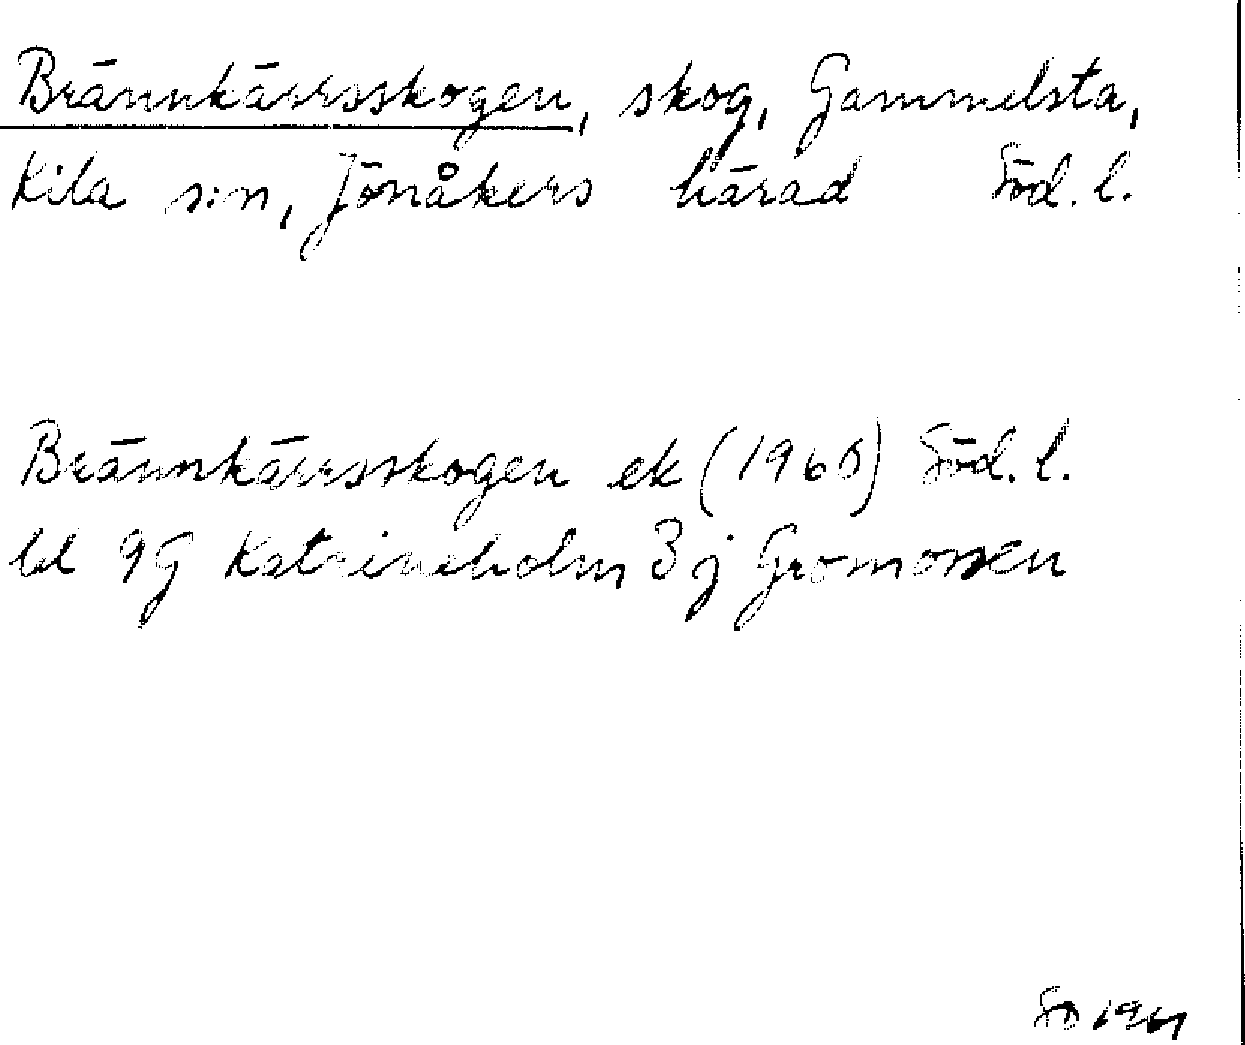 Brännkärrsskogen, skog, Gammelsta,
Kila s:n, Jönåkers härad Söd. l.
Brännkärrsskogen ek (1960) Söd. l.
bl 9G Katrineholm 3 j Gromossen